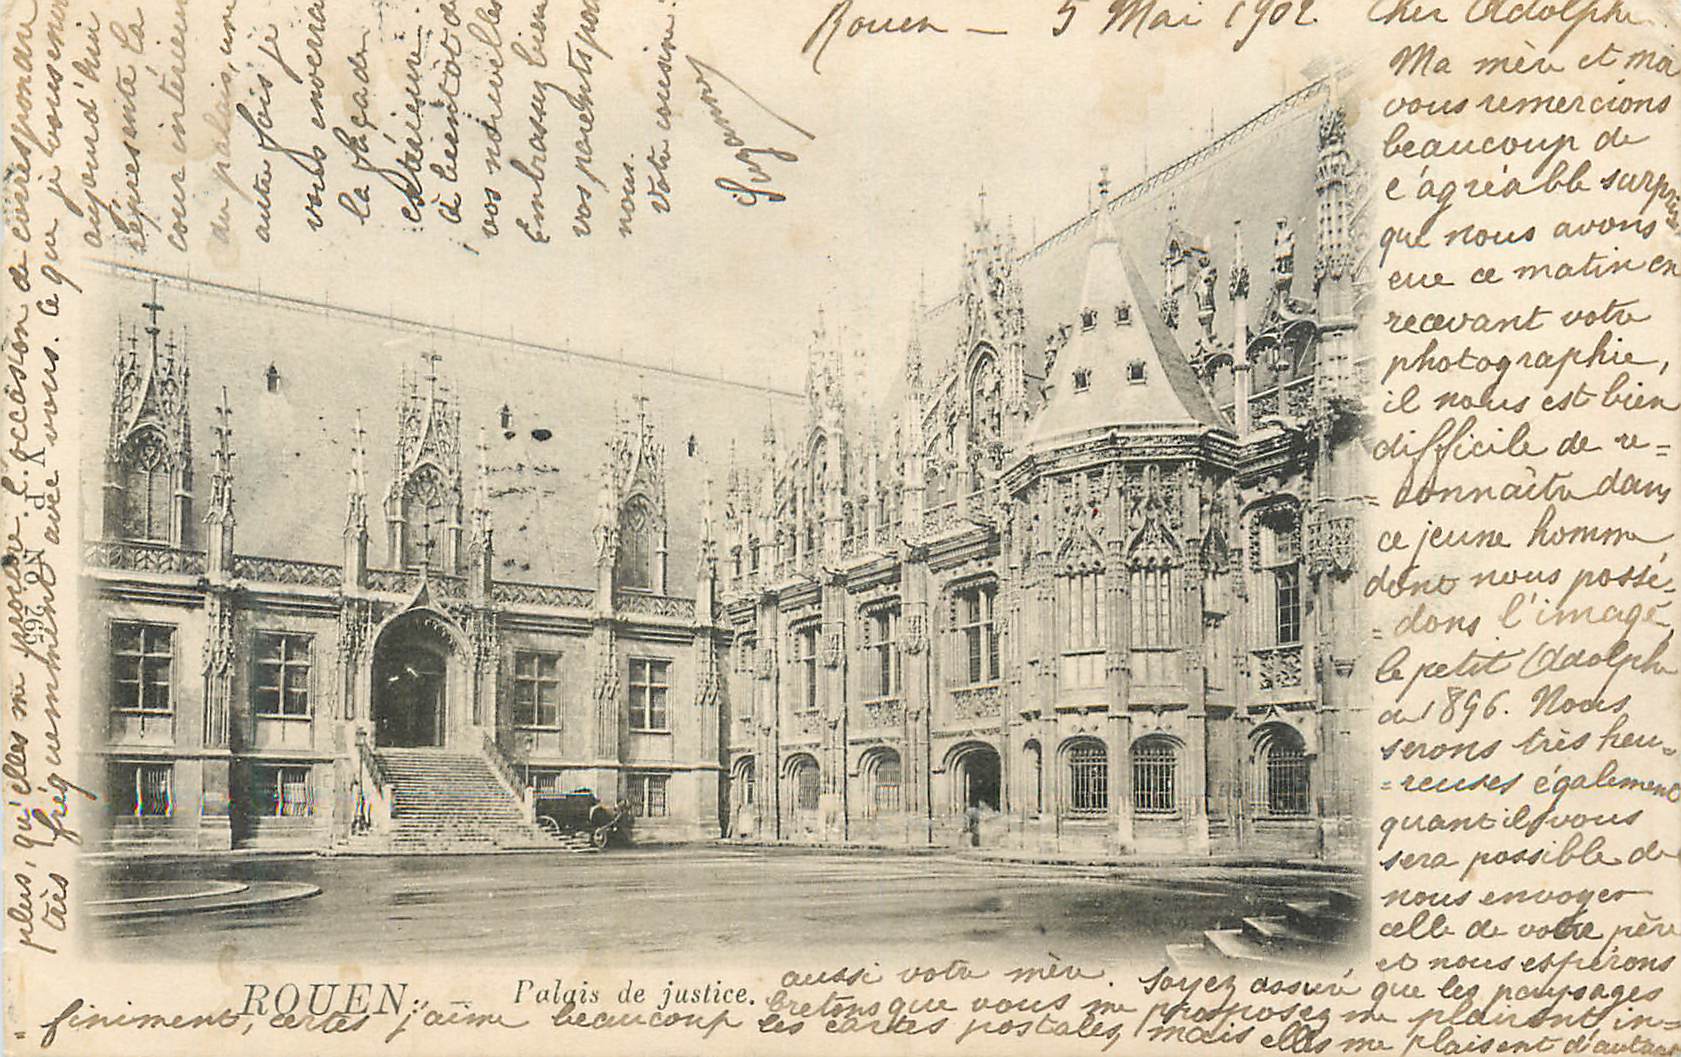 Rouen — 5 Mai 1902. Cher Adolphe
Ma mère et moi
vous remercions
beaucoup de
l'agréable surprise
que nous avons
eue ce matin en
recevant votre
photographie,
il nous est bien
difficile de re=
=connaître dans
ce jeune homme,
dont nous possé=
=dons l'image,
le petit Adolphe
de 1896. Nous
serons très heu=
=reuses également
quant il vous
sera possible de
nous envoyer
celle de votre père
et nous espérons
aussi votre mère. Soyez assuré que les paysages
bretons que vous me proposez me plairont in=
=finiment, certes j'aime beaucoup les cartes postales, mais elles me plaisent d'autant
plus, qu'elles me procure l'occasion de correspondre
très fréquemment avec vous. Ce que je vous envoie
aujourd'hui
représente la
cour intérieure
du palais, une
autre fois je
vous enverrai
la façade
extérieure.
à bientôt de
vos nouvelles
Embrassez bien
vos parents pour
nous.
Votre cousine.
Suzanne
ROUEN. — Palais de justice.
N. D. Phot.